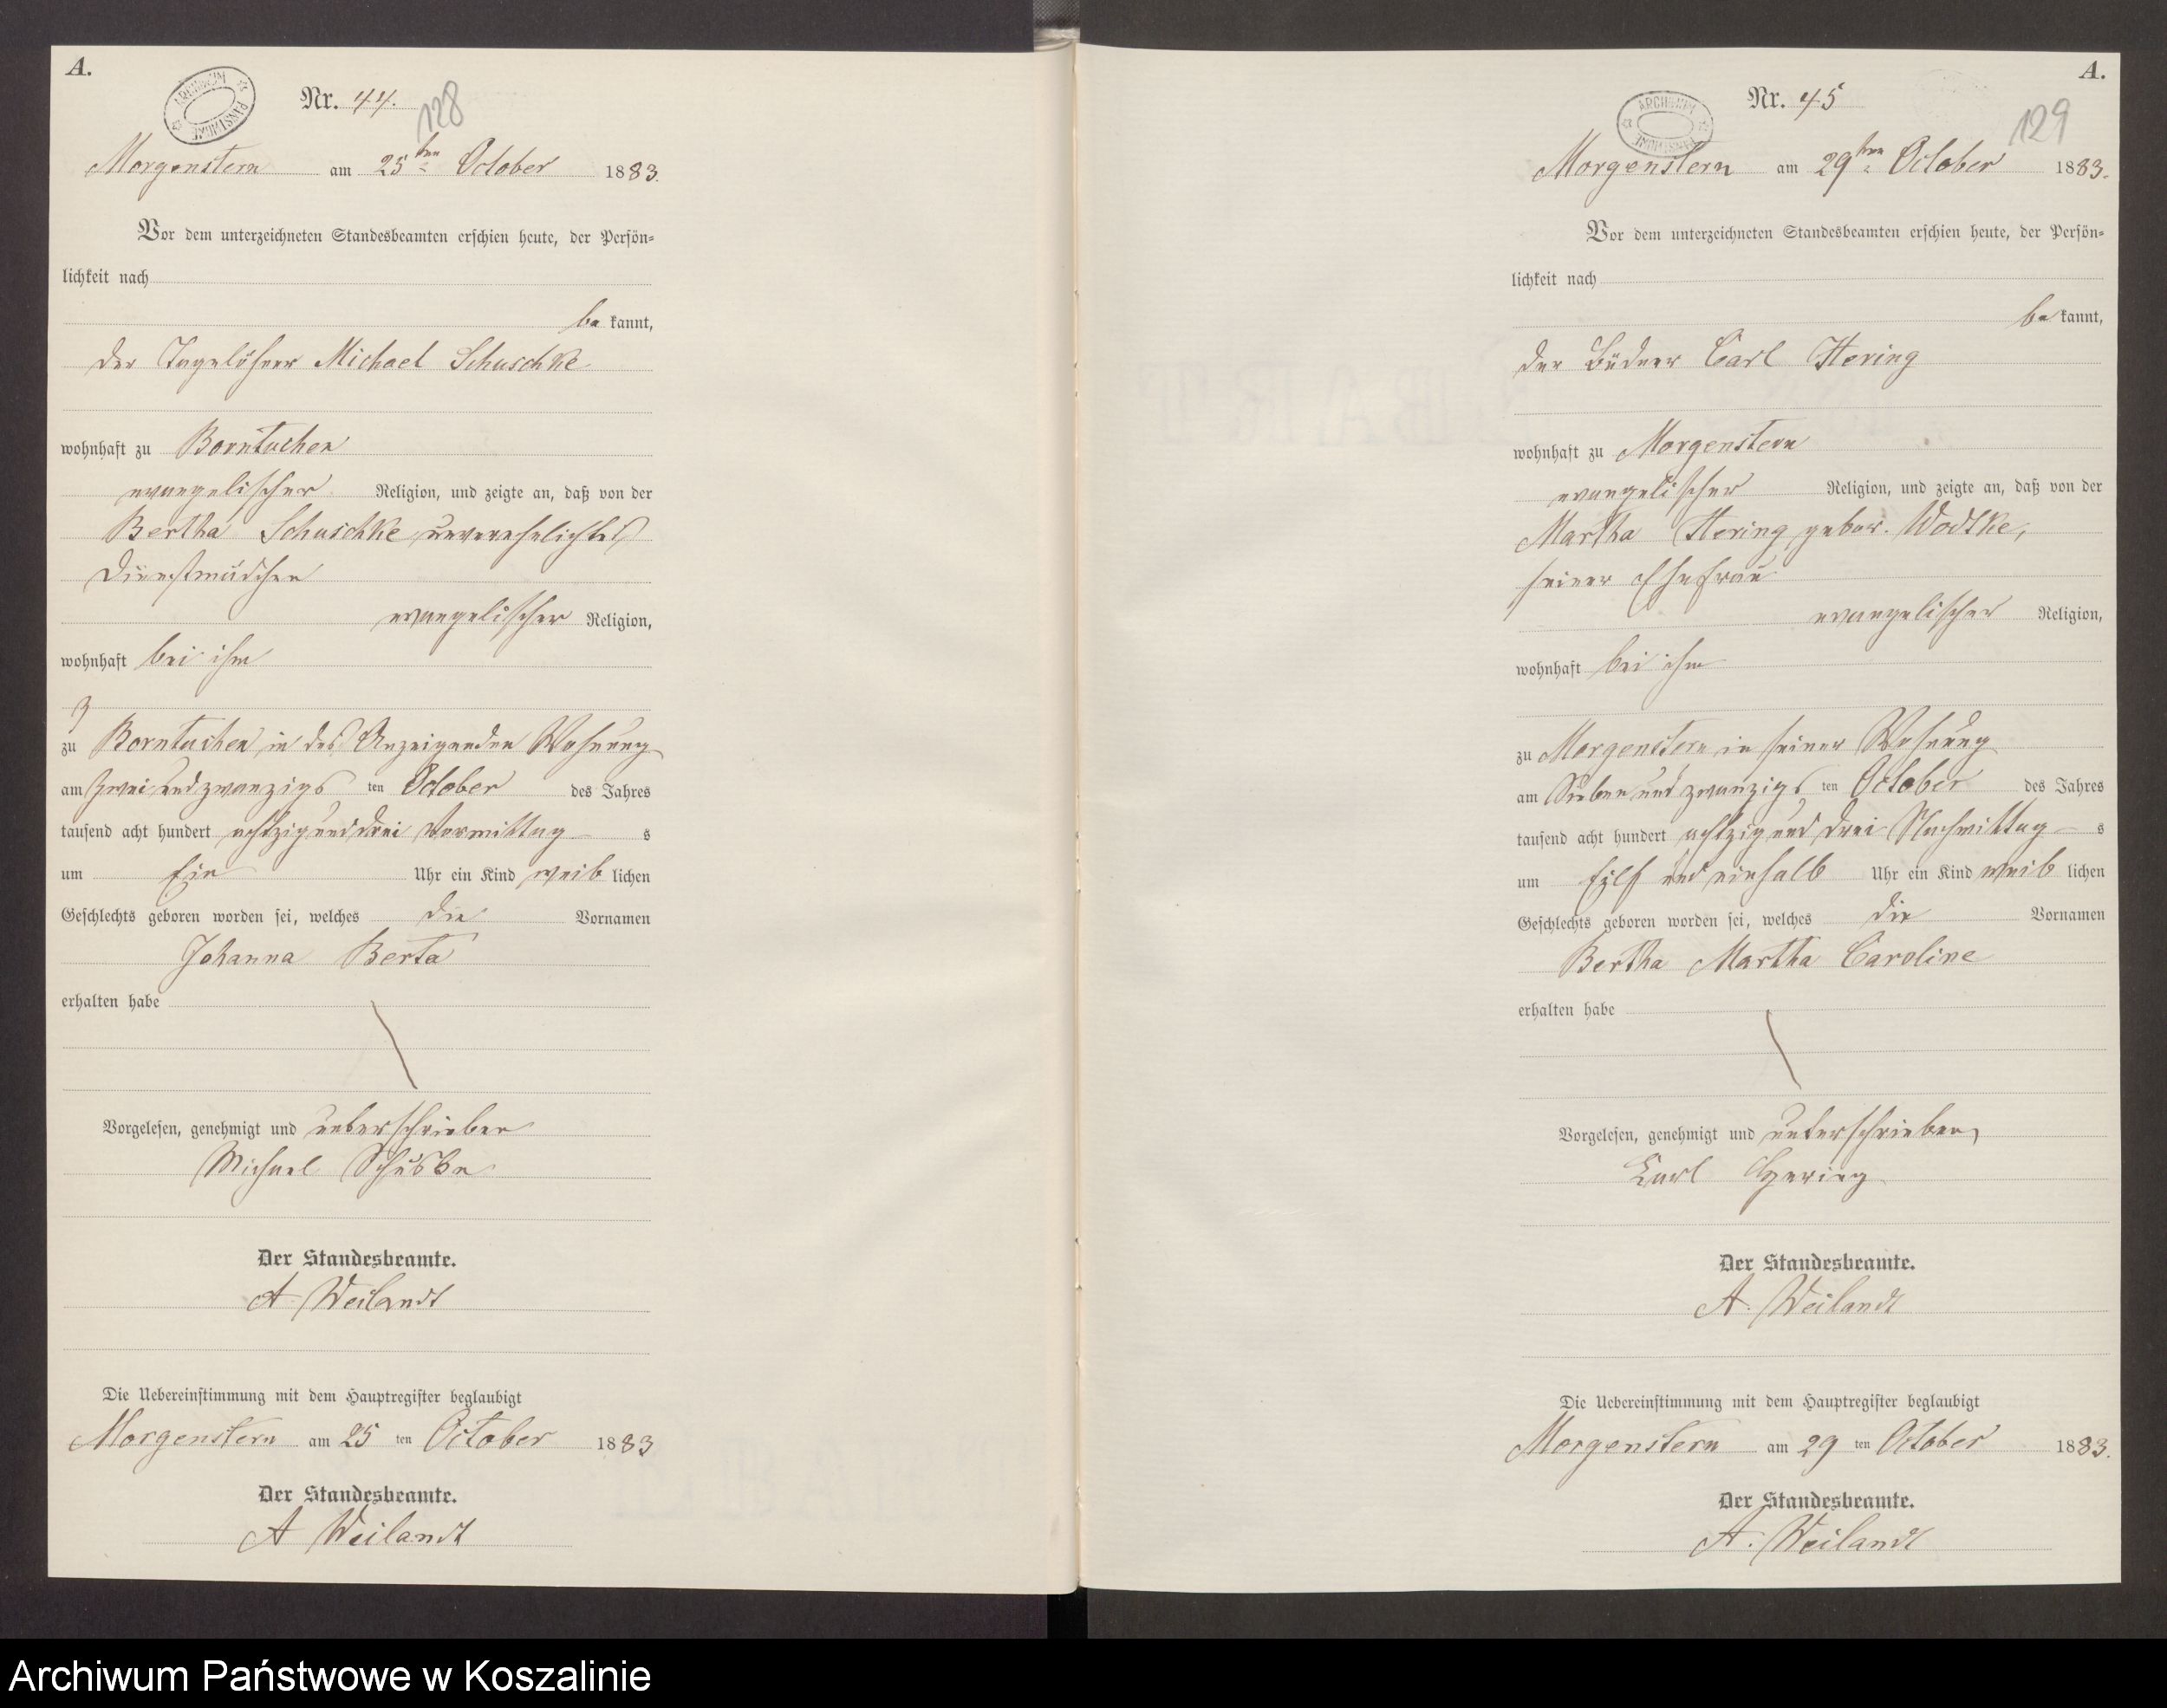 A.
ARCHIWUM PAŃSTWOWE
Nr. 44.
128
Morgenstern am 25ten October 1883.
Vor dem unterzeichneten Standesbeamten erschien heute, der Persön=
lichkeit nach
be kannt,
der Tagelöhner Michael Schuschke
wohnhaft zu Borntuchen
evangelischer Religion, und zeigte an, daß von der
Bertha Schuschke, unverehelichtes
Dienstmädchen
evangelischer Religion,
wohnhaft bei ihm
zu Borntuchen in des Anzeigenden Wohnung
am zwei und zwanzigs ten October des Jahres
tausend acht hundert achtzig und drei Vormittag s
um Ein Uhr ein Kind weib lichen
Geschlechts geboren worden sei, welches die Vornamen
Johanna Berta
erhalten habe
Vorgelesen, genehmigt und unterschrieben
Michael
Der Standesbeamte.
A Weilandt
Die Uebereinstimmung mit dem Hauptregister beglaubigt
Morgenstern am 25 ten October 1883
Der Standesbeamte.
A Weilandt
A.
ARCHIWUM PAŃSTWOWE
Nr. 45
129
Morgenstern am 29ten October 1883.
Vor dem unterzeichneten Standesbeamten erschien heute, der Persön=
lichkeit nach
be kannt,
der Büdner Carl Hering
wohnhaft zu Morgenstern
evangelischer Religion, und zeigte an, daß von der
Martha Hering gebor. Wodtke,
seiner Ehefrau
evangelischer Religion,
wohnhaft bei ihm
zu Morgenstern in seiner Wohnung
am Sieben und zwanzigs ten October des Jahres
tausend acht hundert achtzig und drei Nachmittag s
um Eilf und einhalb Uhr ein Kind weib lichen
Geschlechts geboren worden sei, welches die Vornamen
Bertha Martha Caroline
erhalten habe
Vorgelesen, genehmigt und unterschrieben,
Karl Hering
Der Standesbeamte.
A. Weilandt
Die Uebereinstimmung mit dem Hauptregister beglaubigt
Morgenstern am 29 ten October 1883.
Der Standesbeamte.
A. Weilandt
Archiwum Państwowe w Koszalinie